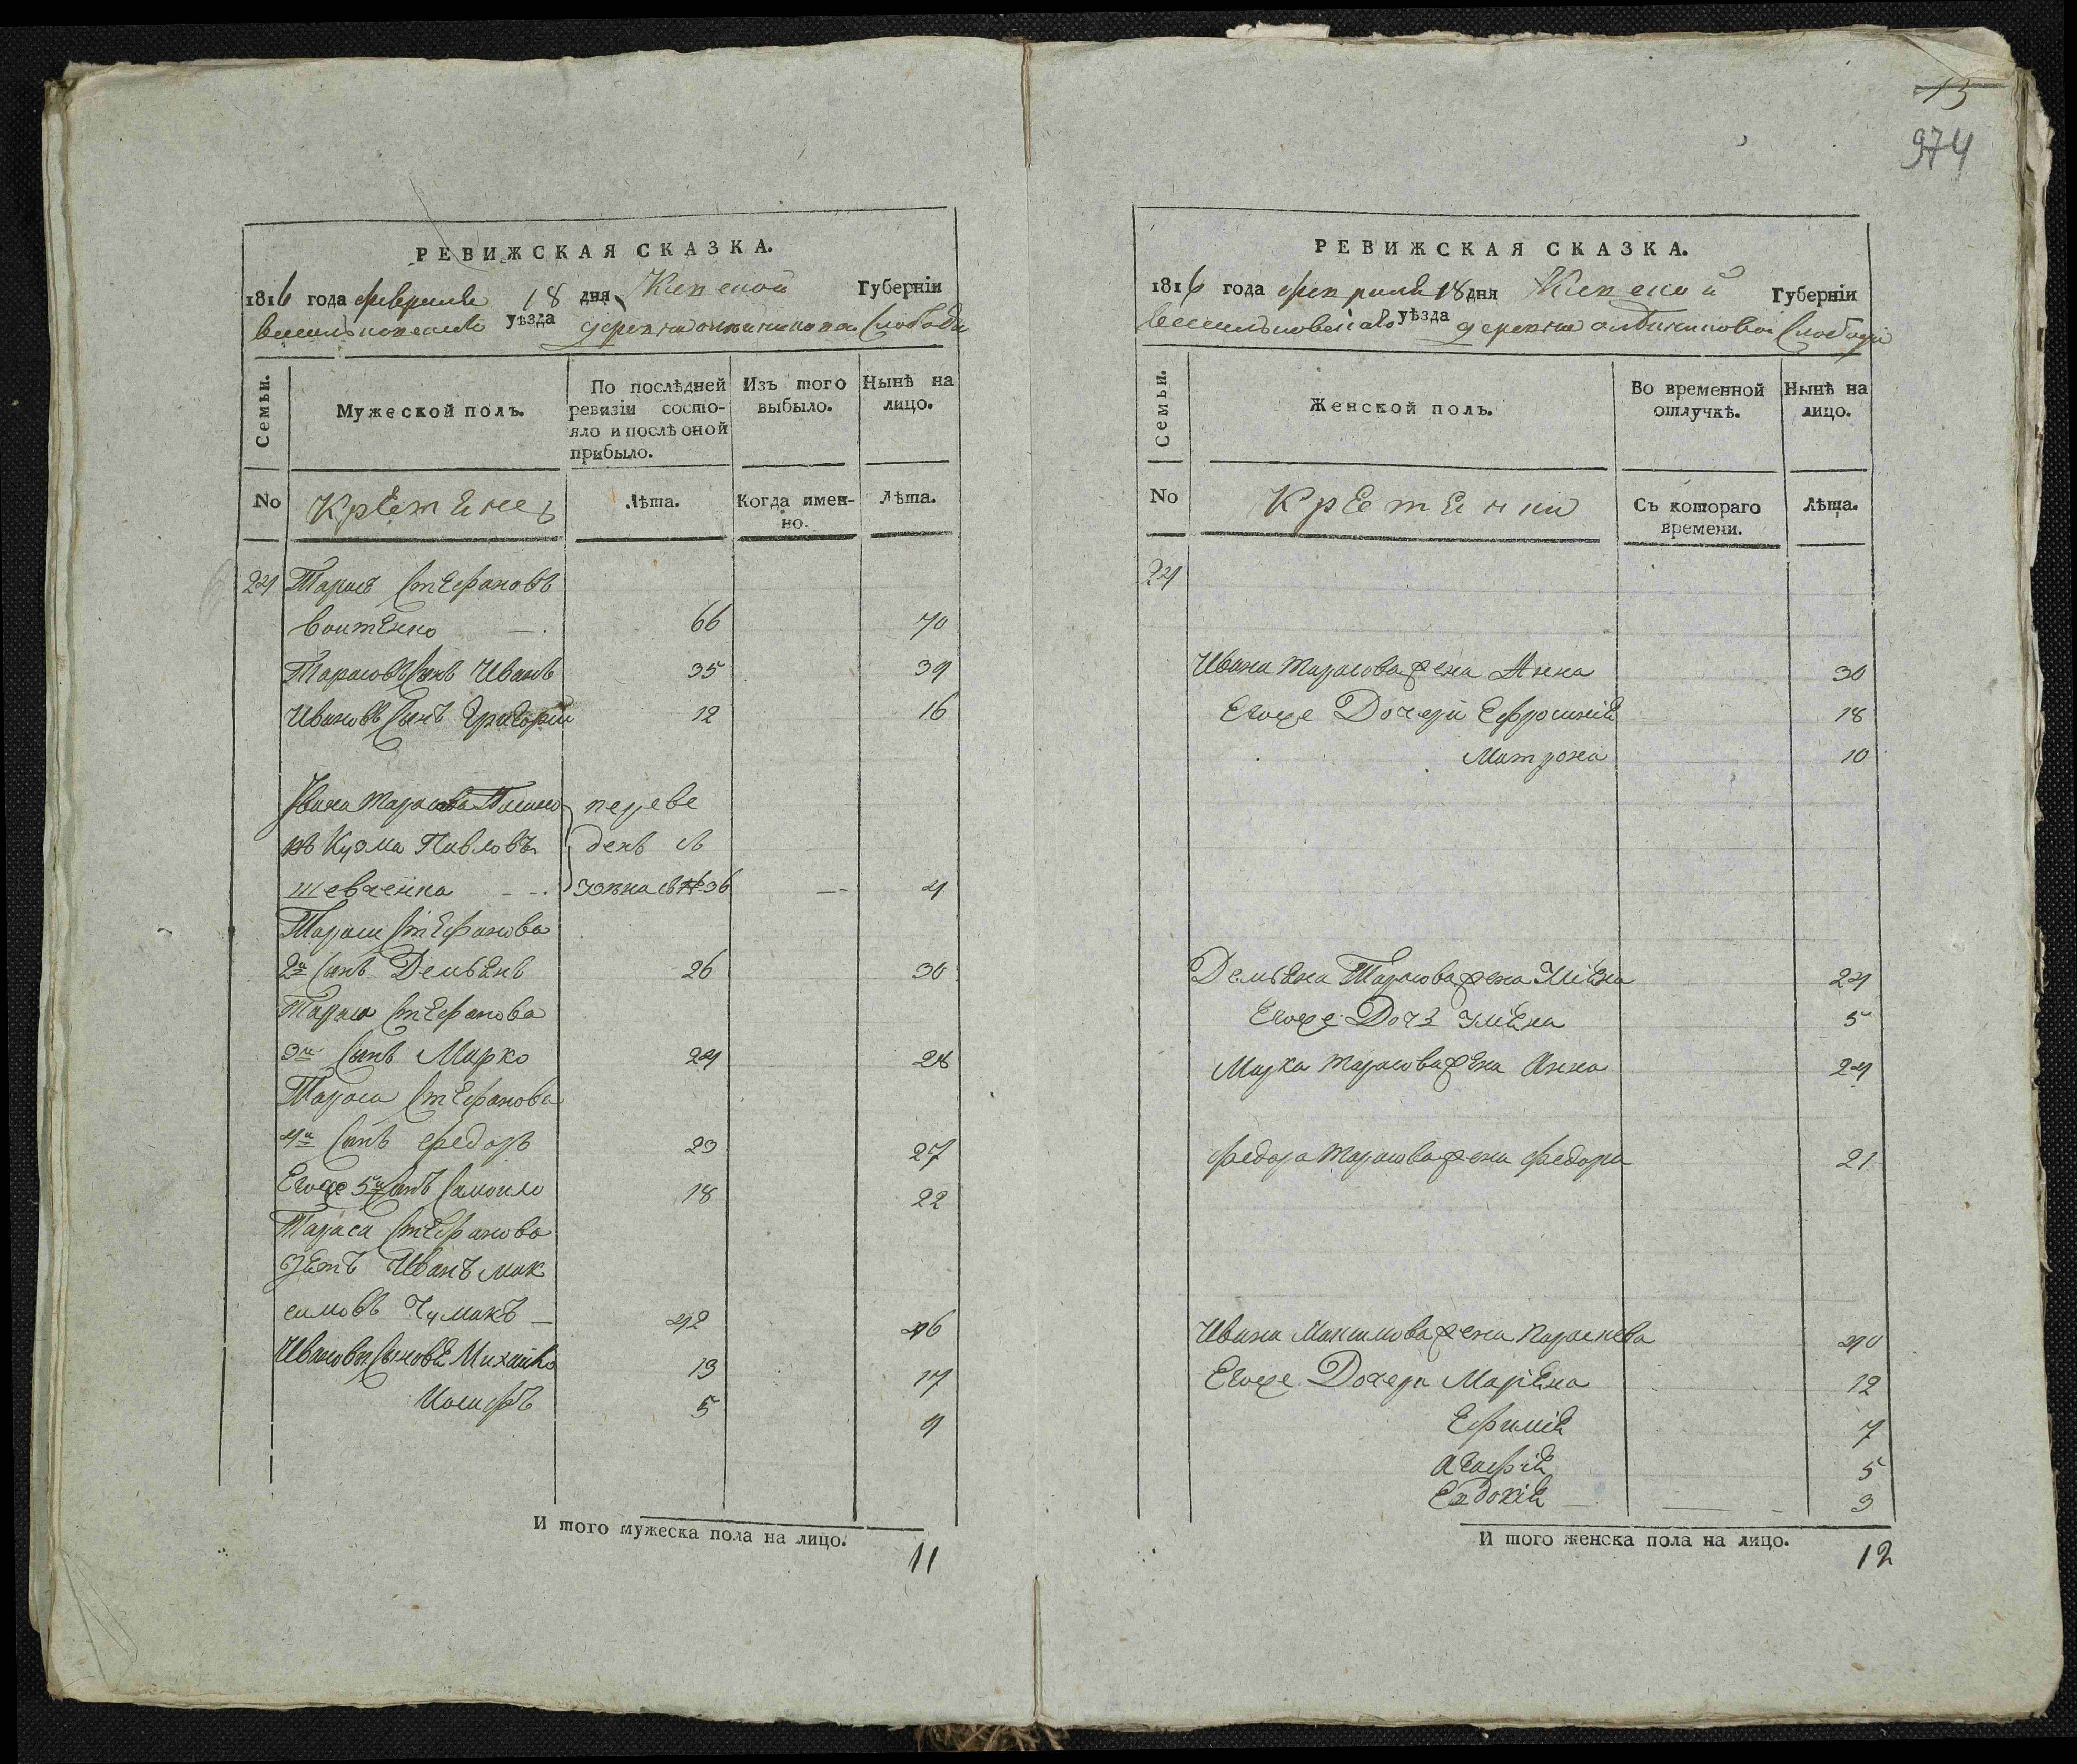 13
974
РЕВИЖСКАЯ СКАЗКА.
1816 года февраля 18 дня Киевской Губерніи
васильковского уѣзда деревни Слободы
Семьи.
Мужеской полъ.
По послѣдней ревизіи состояло и послѣ оной прибыло.
Изъ того выбыло.
Нынѣ на лицо.
No
Крестяне
Лѣта.
Когда именно.
Лѣта.
24 Тарасъ Стефановъ
воитенко 66 70
Тарасовъ Сынъ Иванъ 35 39
Ивановъ Сынъ Григорій 12 16
Ивана Тарасова переве
Кузма Павловъ денъ
шевченко № 36 4
Тараса Стефанова
2й Сынъ Демьянъ 26 30
Тараса Стефанова
3й Сынъ Марко 24 28
Тараса Стефанова
4й Сынъ Федоръ 23 27
Егоже 5й Сынъ Самоило 18 22
Тараса Стефанова
зять Иванъ Мак
симовъ Чумакъ 42 46
Ивановы Сыновя Михаило 13 17
Иосифъ 5 9
И того мужеска пола на лицо. 11
РЕВИЖСКАЯ СКАЗКА.
1816 года февраля 18 дня Киевской Губерніи
васильковского уѣзда деревни Слободы
Семьи.
Женской полъ.
Во временной отлучкѣ.
Нынѣ на лицо.
No
Крестянки
Съ котораго времени.
Лѣта.
24
Ивана Тарасова жена Анна 30
Егоже Дочери Ефросинія 18
Матрона 10
Демьяна Тарасова жена Уляна 24
Егоже Дочь Уляна 5
Марка Тарасова жена Анна 24
Федора Тарасова жена Федора 21
Ивана Максимова жена Параскева 40
Егоже Дочери Маріяна 12
Ефимія 7
Агафія 5
Евдокія 3
И того женска пола на лицо. 12